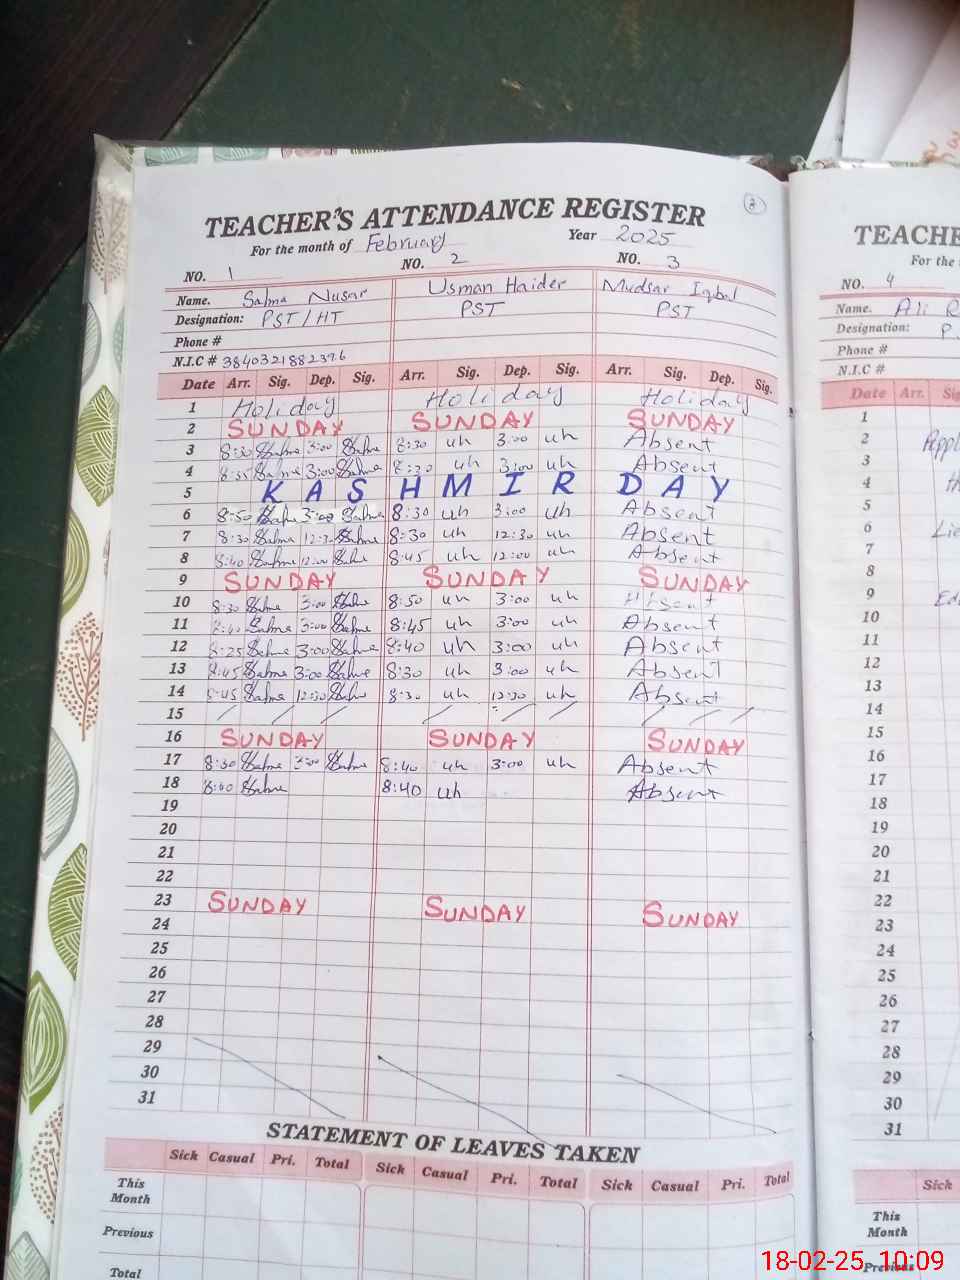 2
TEACHER'S ATTENDANCE REGISTER
For the month of February Year 2025
NO. 1 NO. 2 NO. 3
Name. Salma Nusar Usman Haider Mudsar Iqbal
Designation: PST/HT PST PST
Phone #
N.I.C # 3840321882376
Date Arr. Sig. Dep. Sig. Arr. Sig. Dep. Sig. Arr. Sig. Dep. Sig.
1 Holiday Holiday Holiday
2 SUNDAY SUNDAY SUNDAY
3 8:30 Salma 3:00 Salma 8:30 uh 3:00 uh Absent
4 8:35 Salma 3:00 Salma 8:30 uh 3:00 uh Absent
5 KASHMIR DAY
6 8:50 Salma 3:00 Salma 8:30 uh 3:00 uh Absent
7 8:30 Salma 12:30 Salma 8:30 uh 12:30 uh Absent
8 8:40 Salma 12:00 Salma 8:45 uh 12:00 uh Absent
9 SUNDAY SUNDAY SUNDAY
10 8:30 Salma 3:00 Salma 8:50 uh 3:00 uh Absent
11 8:40 Salma 3:00 Salma 8:45 uh 3:00 uh Absent
12 8:25 Salma 3:00 Salma 8:40 uh 3:00 uh Absent
13 8:45 Salma 3:00 Salma 8:30 uh 3:00 uh Absent
14 8:45 Salma 12:30 Salma 8:30 uh 12:30 uh Absent
15 / / / / / / / / /
16 SUNDAY SUNDAY SUNDAY
17 8:30 Salma 3:00 Salma 8:40 uh 3:00 uh Absent
18 8:40 Salma 8:40 uh Absent
19
20
21
22
23 SUNDAY SUNDAY SUNDAY
24
25
26
27
28
29
30
31
STATEMENT OF LEAVES TAKEN
Sick Casual Pri. Total Sick Casual Pri. Total Sick Casual Pri. Total
This Month
Previous
Total
TEACHE
For the
NO. 4
Name. Ali
Designation: P
Phone #
N.I.C #
Date Arr.
1
2
3
4
5
6
7
8
9
10
11
12
13
14
15
16
17
18
19
20
21
22
23
24
25
26
27
28
29
30
31
Sick
This Month
Previous
18-02-25 10:09